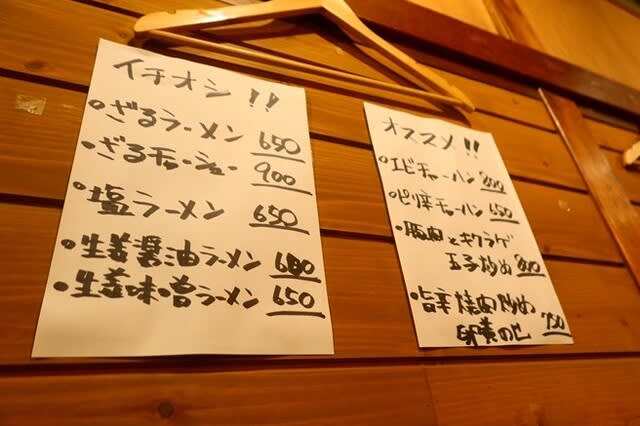 イチオシ!!
・ざるラーメン 650
・ざるチャーシュー 900
・塩ラーメン 650
・生姜醤油ラーメン 680
・生姜味噌ラーメン 650
オススメ!!
・エビチャーハン 800
・ピリ辛チャーハン 650
・豚肉とキクラゲ
玉子炒め 800
・旨辛焼肉炒め
卵黄のせ 750